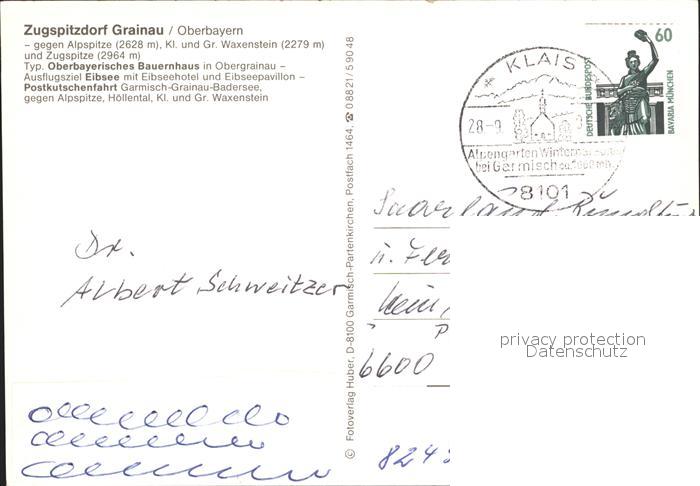 Zugspitzdorf Grainau / Oberbayern
– gegen Alpspitze (2628 m), Kl. und Gr. Waxenstein (2279 m)
und Zugspitze (2964 m)
Typ. Oberbayerisches Bauernhaus in Obergrainau –
Ausflugsziel Eibsee mit Eibseehotel und Eibseepavillon –
Postkutschenfahrt Garmisch-Grainau-Badersee,
gegen Alpspitze, Höllental, Kl. und Gr. Waxenstein
© Fotoverlag Huber, D-8100 Garmisch-Partenkirchen, Postfach 1464, ☎ 08821/59048
KLAIS
28-9.
Alpengarten
bei Garmisch
8101
60
DEUTSCHE BUNDESPOST
BAVARIA MÜNCHEN
Dr.
Albert Schweitzer
Saarland
u.
6600
824
privacy protection
Datenschutz